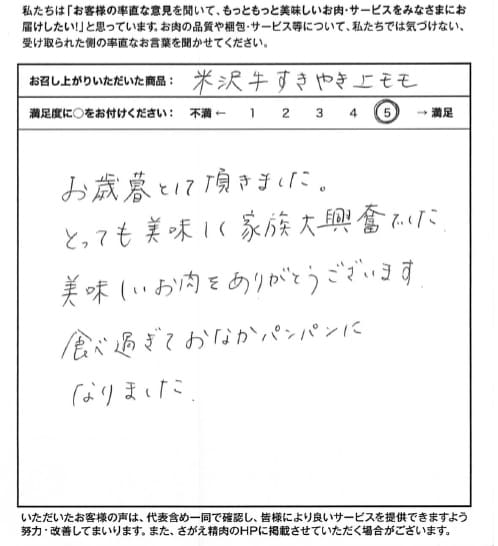 私たちは「お客様の率直な意見を聞いて、もっともっと美味しいお肉・サービスをみなさまにお
届けしたい!」と思っています。お肉の品質や梱包・サービス等について、私たちでは気づけない、
受け取られた側の率直なお言葉を聞かせてください。
お召し上がりいただいた商品： 米沢牛すきやき上モモ
満足度に○をお付けください： 不満 ← 1 2 3 4 5 → 満足
お歳暮として頂きました。
とっても美味しく家族大興奮でした
美味しいお肉をありがとうございます
食べ過ぎておなかパンパンに
なりました
いただいたお客様の声は、代表含め一同で確認し、皆様により良いサービスを提供できますよう
努力・改善してまいります。また、さがえ精肉のHPに掲載させていただく場合がございます。